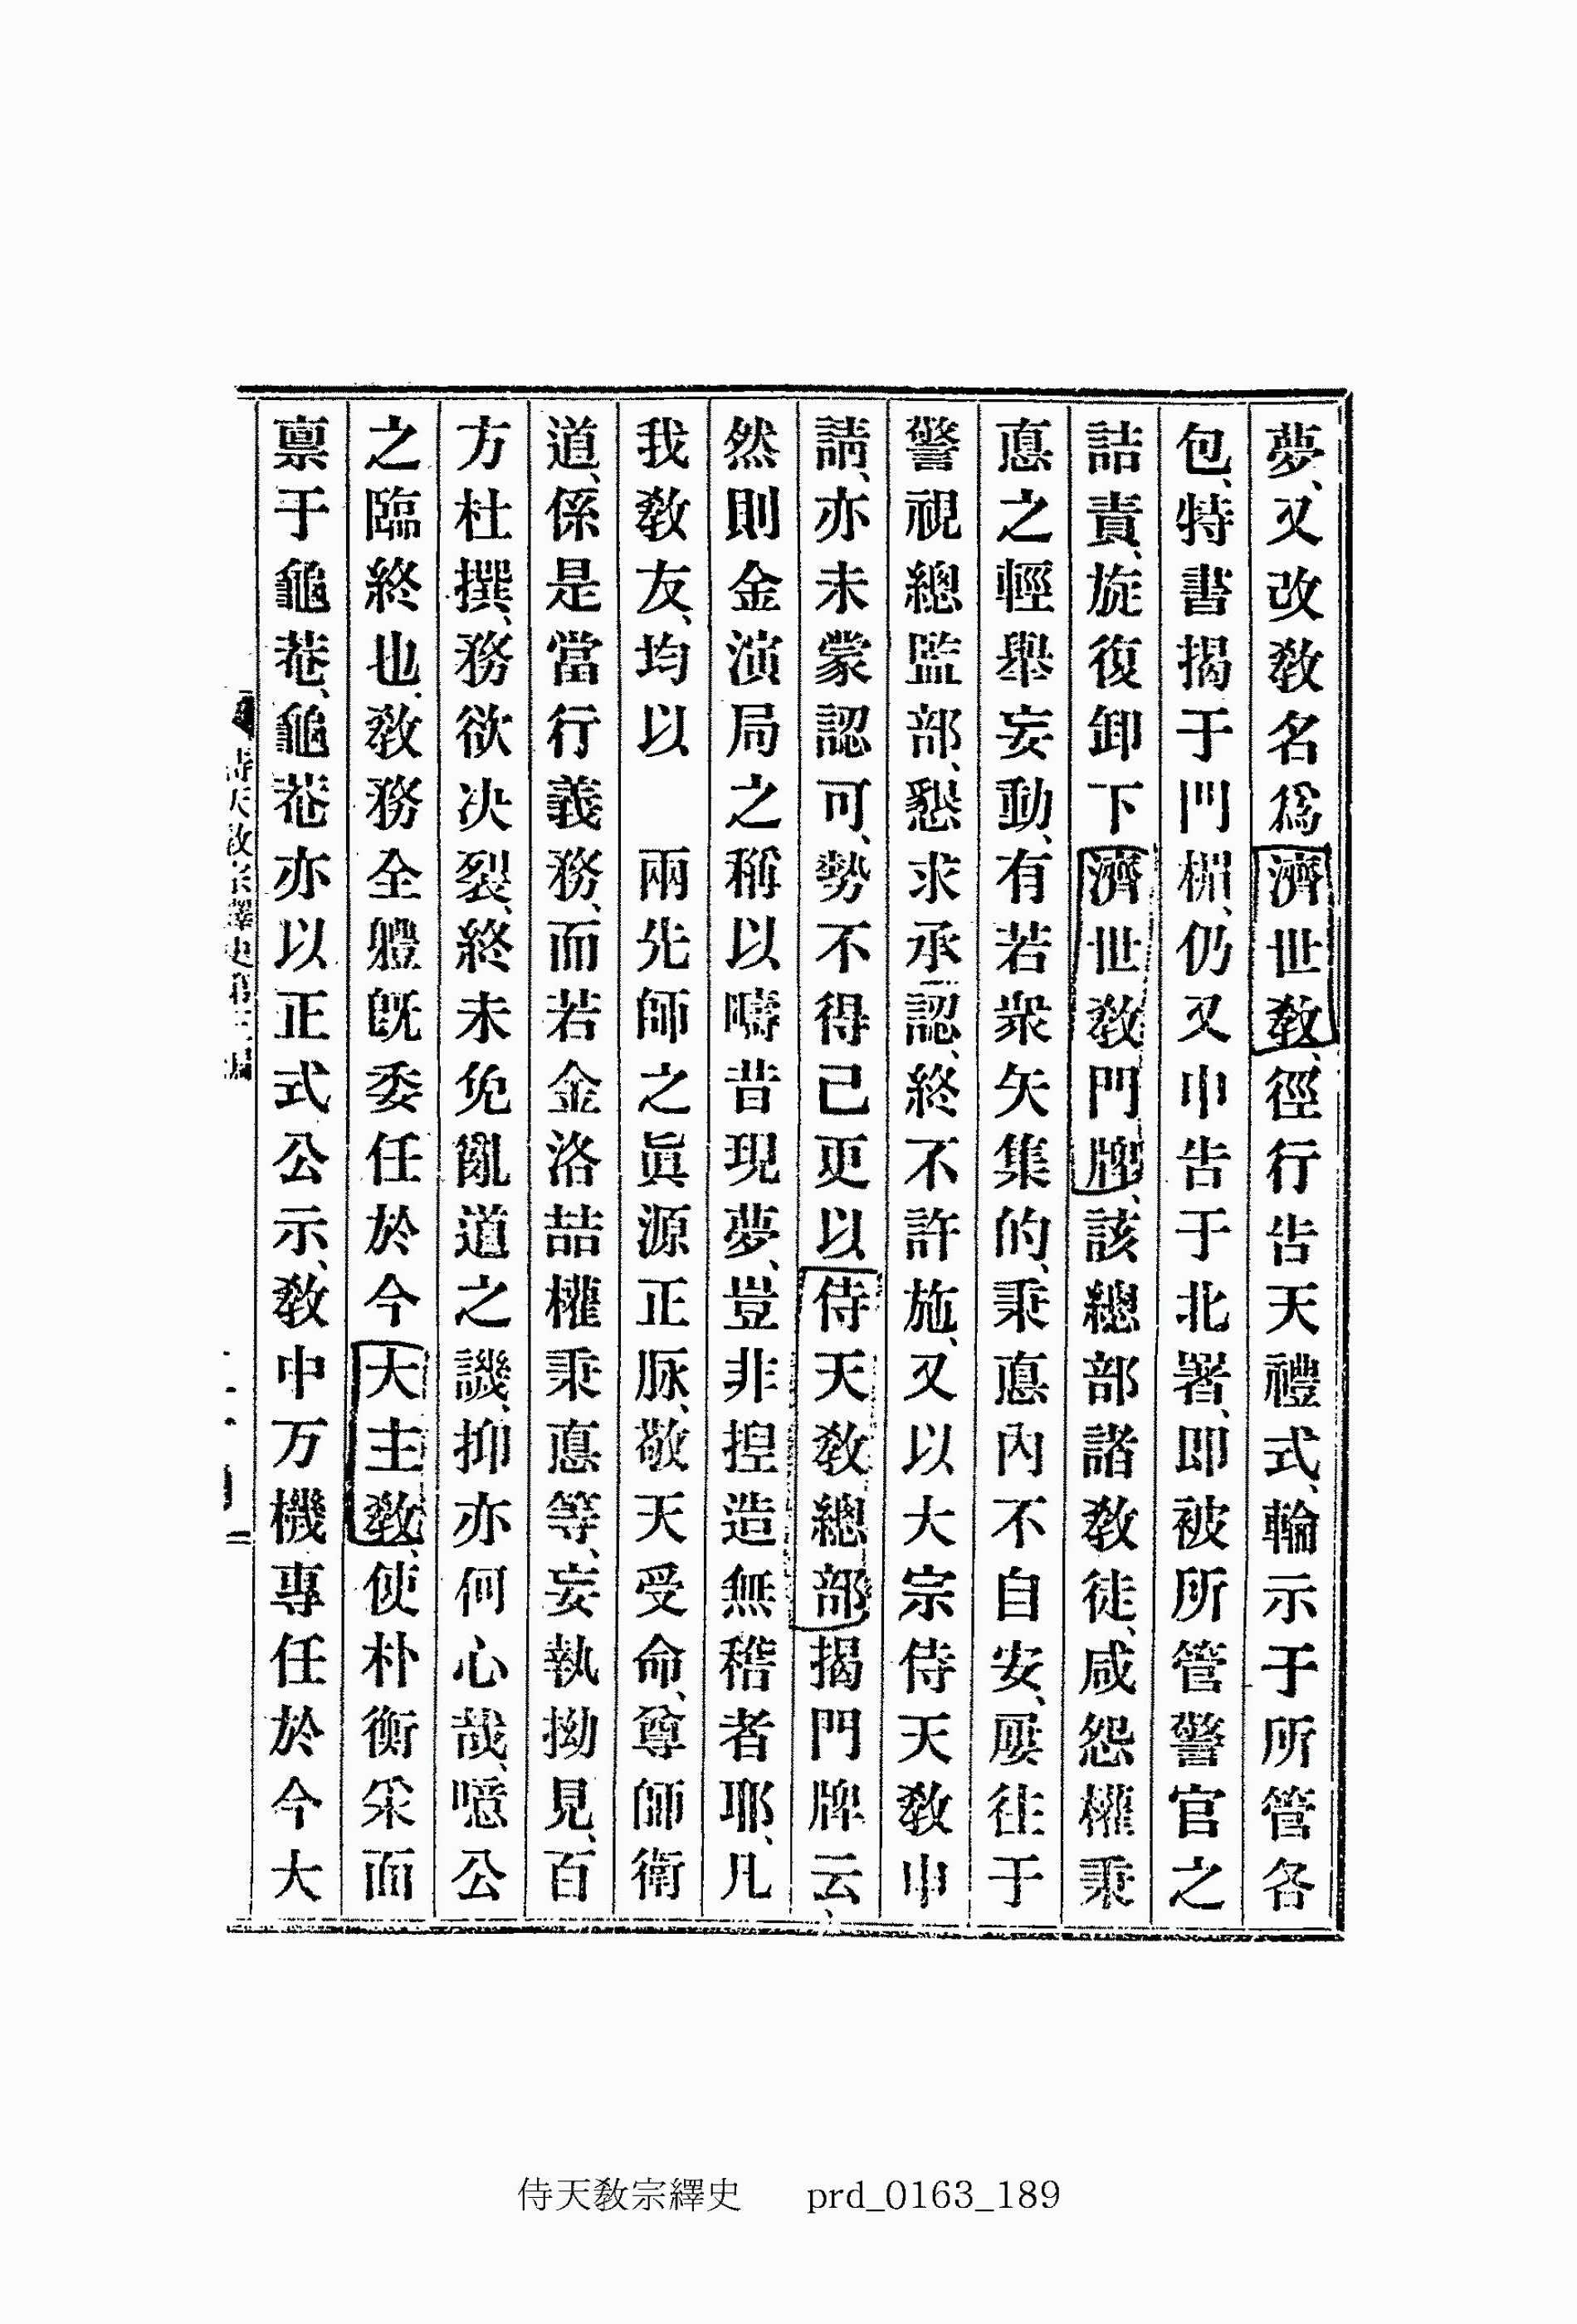 夢、又改敎名爲濟世敎、徑行告天禮式、輪示于所管各
包、特書揭于門楣、仍又申告于北署、即被所管警官之
詰責、旋復卸下濟世敎門牌、該總部諸敎徒、咸怨權秉
悳之輕擧妄動、有若衆矢集的、秉悳內不自安、屢往于
警視總監部、懇求承認、終不許施、又以大宗侍天敎申
請、亦未蒙認可、勢不得已更以侍天敎總部揭門牌云、
然則金演局之稱以疇昔現夢、豈非揑造無稽者耶、凡
我敎友、均以　兩先師之眞源正脉、敬天受命、尊師衛
道、係是當行義務、而若金洛喆權秉悳等、妄執拗見、百
方杜撰、務欲决裂、終未免亂道之譏、抑亦何心哉、噫公
之臨終也、敎務全軆旣委任於今大主敎、使朴衡采面
禀于龜菴、龜菴亦以正式公示、敎中万機專任於今大
侍天敎宗繹史第三編
侍天敎宗繹史 prd_0163_189